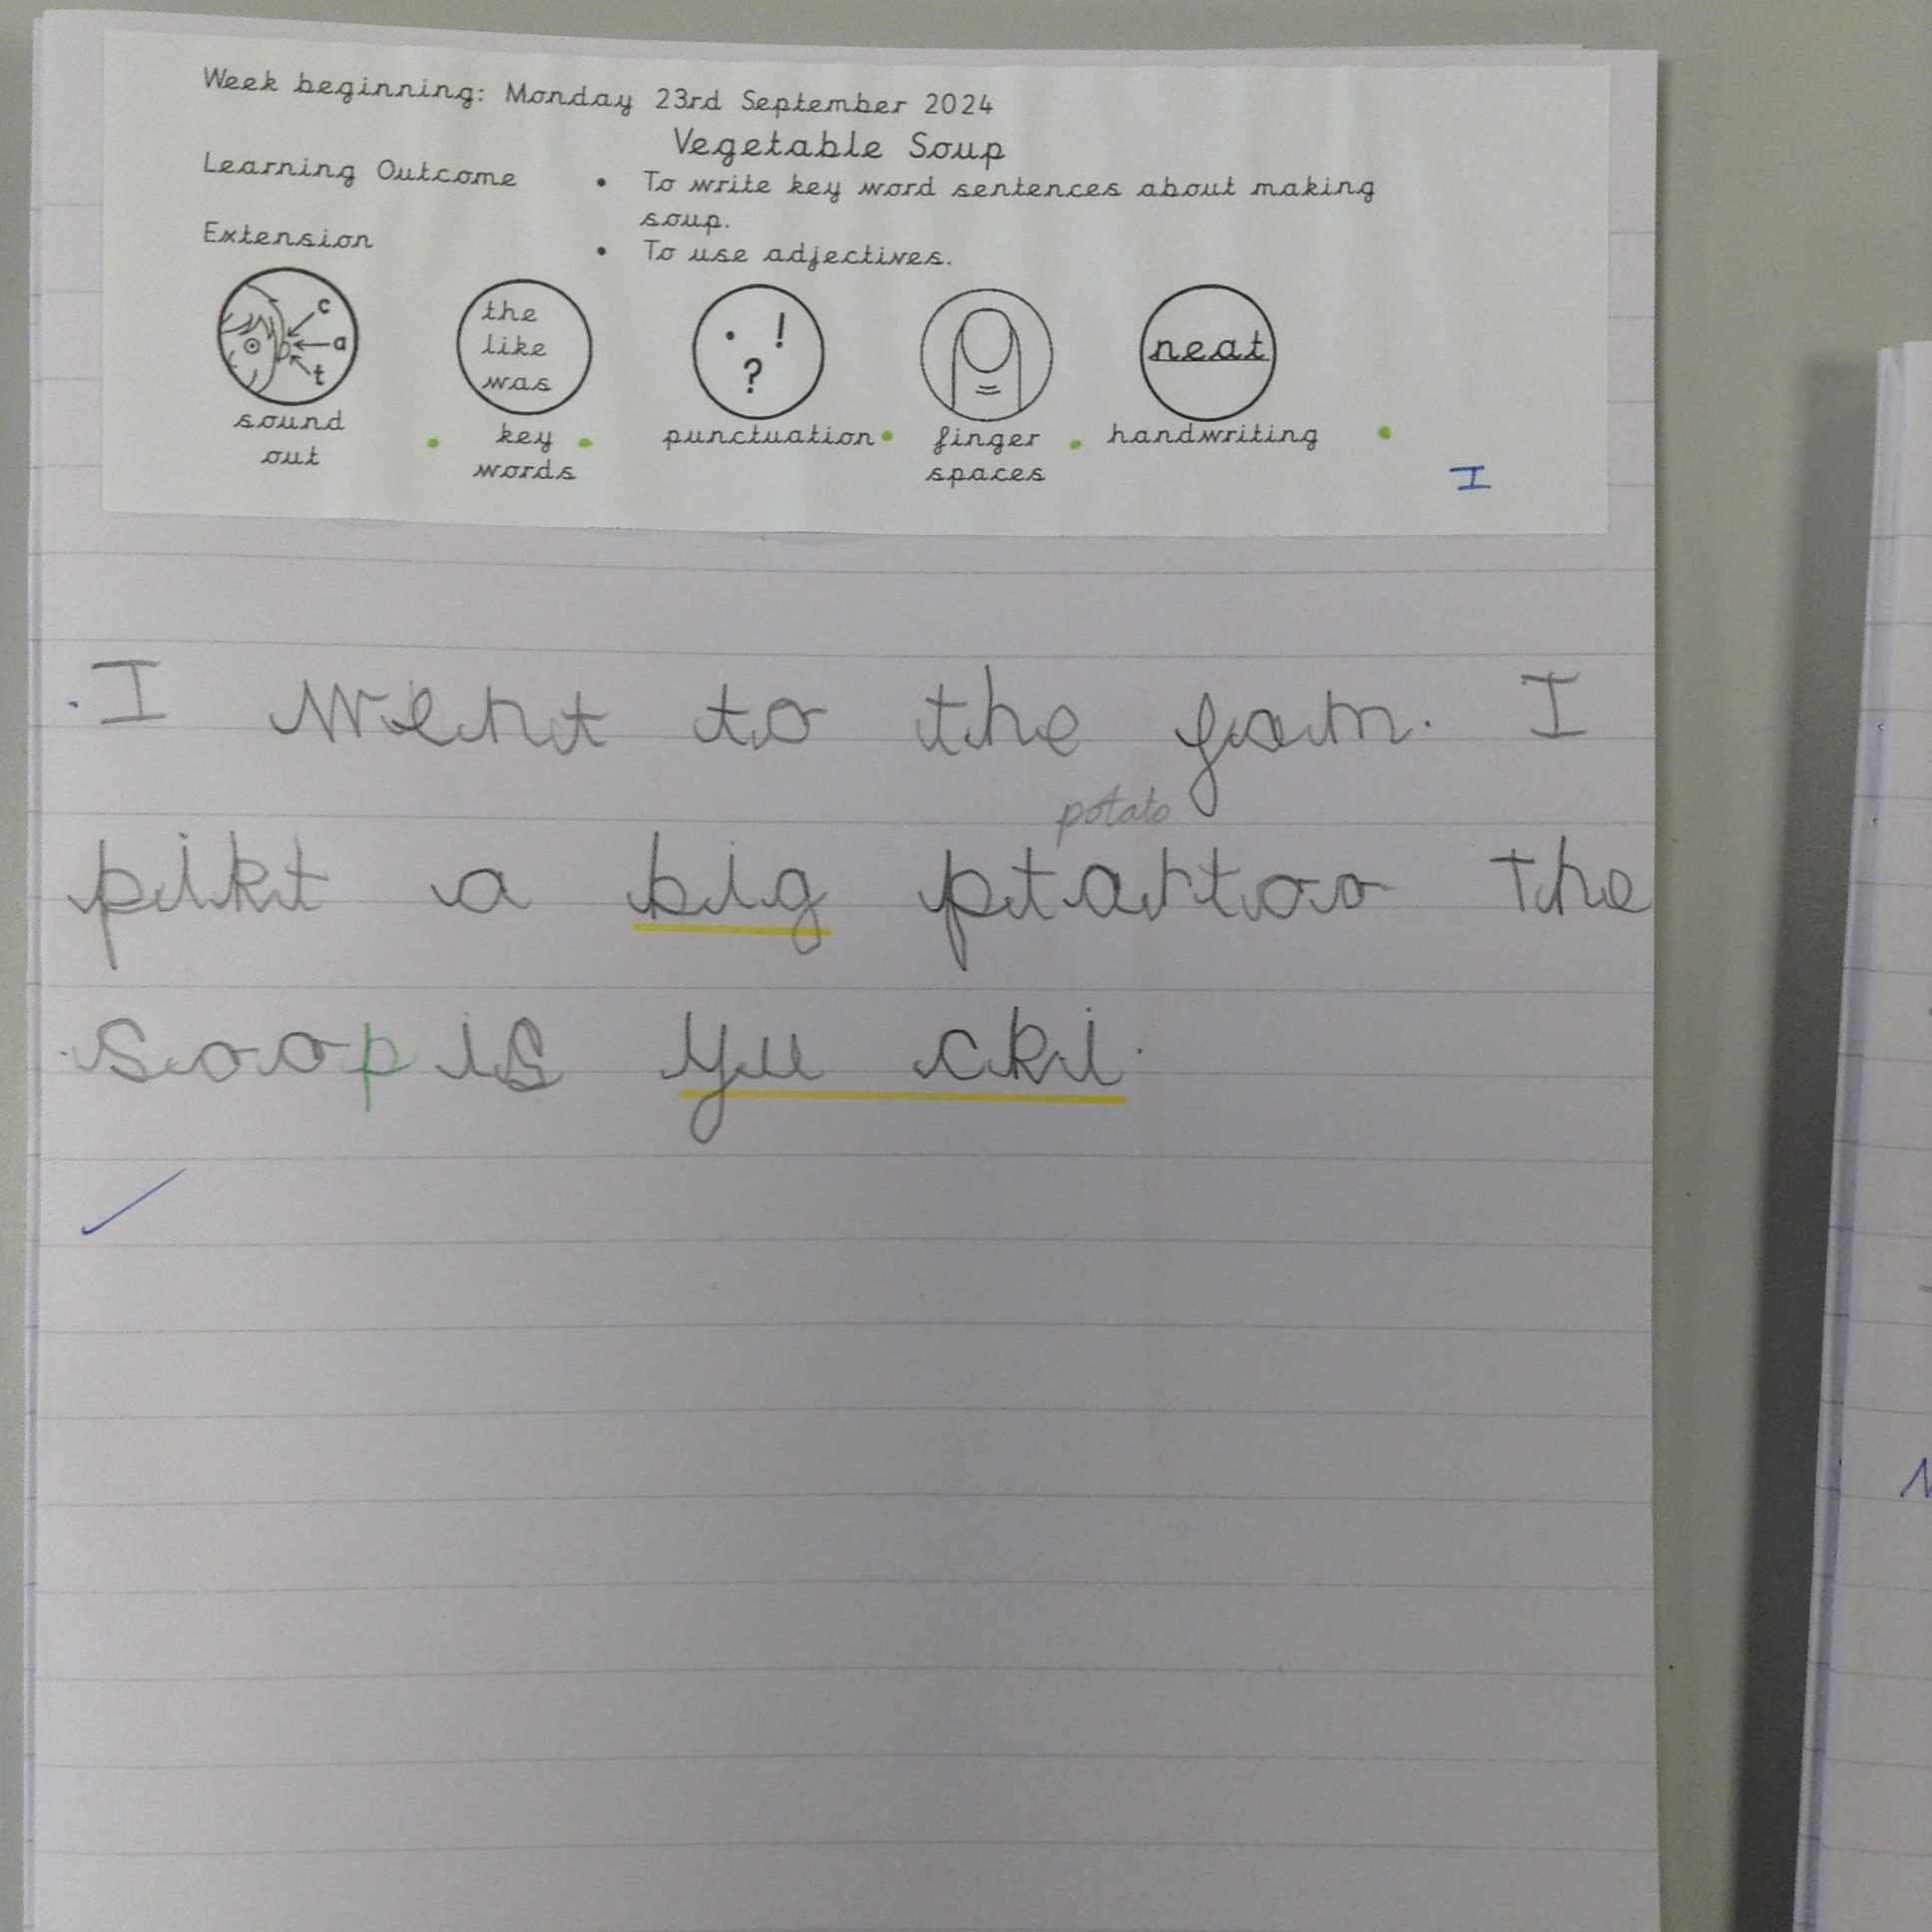 Week beginning: Monday 23rd September 2024
Vegetable Soup
Learning Outcome
• To write key word sentences about making
soup.
Extension
• To use adjectives.
c
a
t
the
like
was
. !
?
neat
sound
out
key
words
punctuation
finger
spaces
handwriting
I
I went to the fam. I
potato
pikt a big ptartoo the
soop is yu cki.